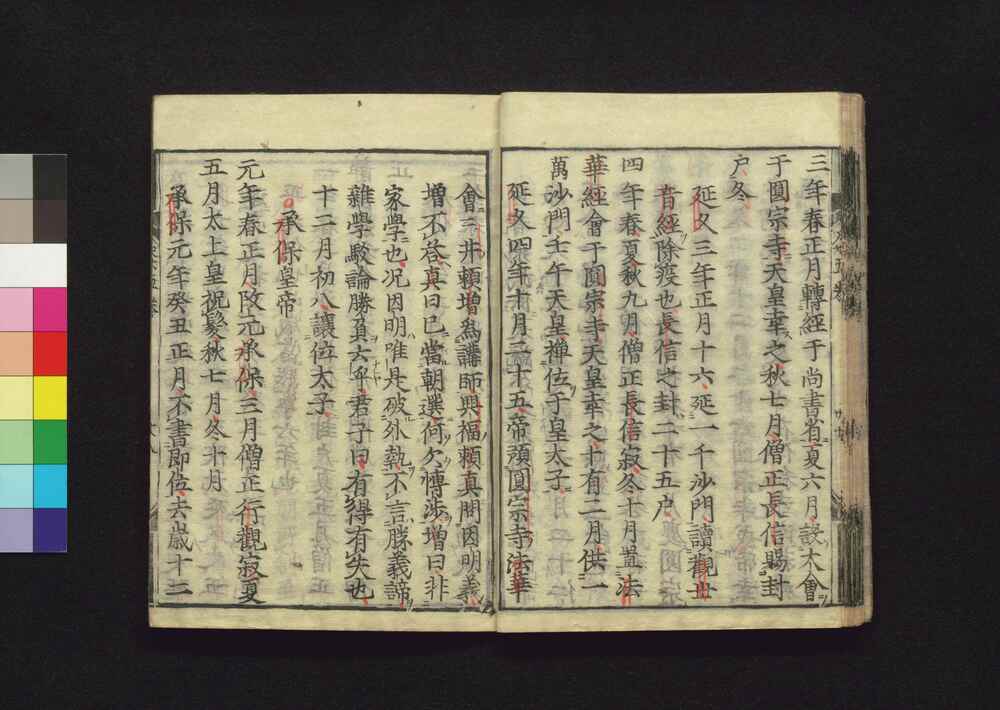 三年春正月轉經于尚書省夏六月設大會
于圓宗寺天皇幸之秋七月僧正長信賜封
戶冬
延久三年正月十六延一千沙門讀觀世
音經除疫也長信之封二十五户
四年春夏秋九月僧正長信寂冬十月置法
華經會于圓宗寺天皇幸之十有二月供一
萬沙門壬午天皇禪位于皇太子
延久四年十月二十五帝顧圓宗寺法華
會三井賴增爲講師興福賴真問因明義
增不荅真曰已當朝選何欠博涉增曰非
家學也况因明唯是破外執不言勝義諦
雜學駮論勝負大乎君子曰有得有失也
十二月初八讓位太子
承保皇帝
元年春正月改元承保三月僧正行觀寂夏
五月太上皇祝髮秋七月冬十月
承保元年癸丑正月不書即位去歲十二